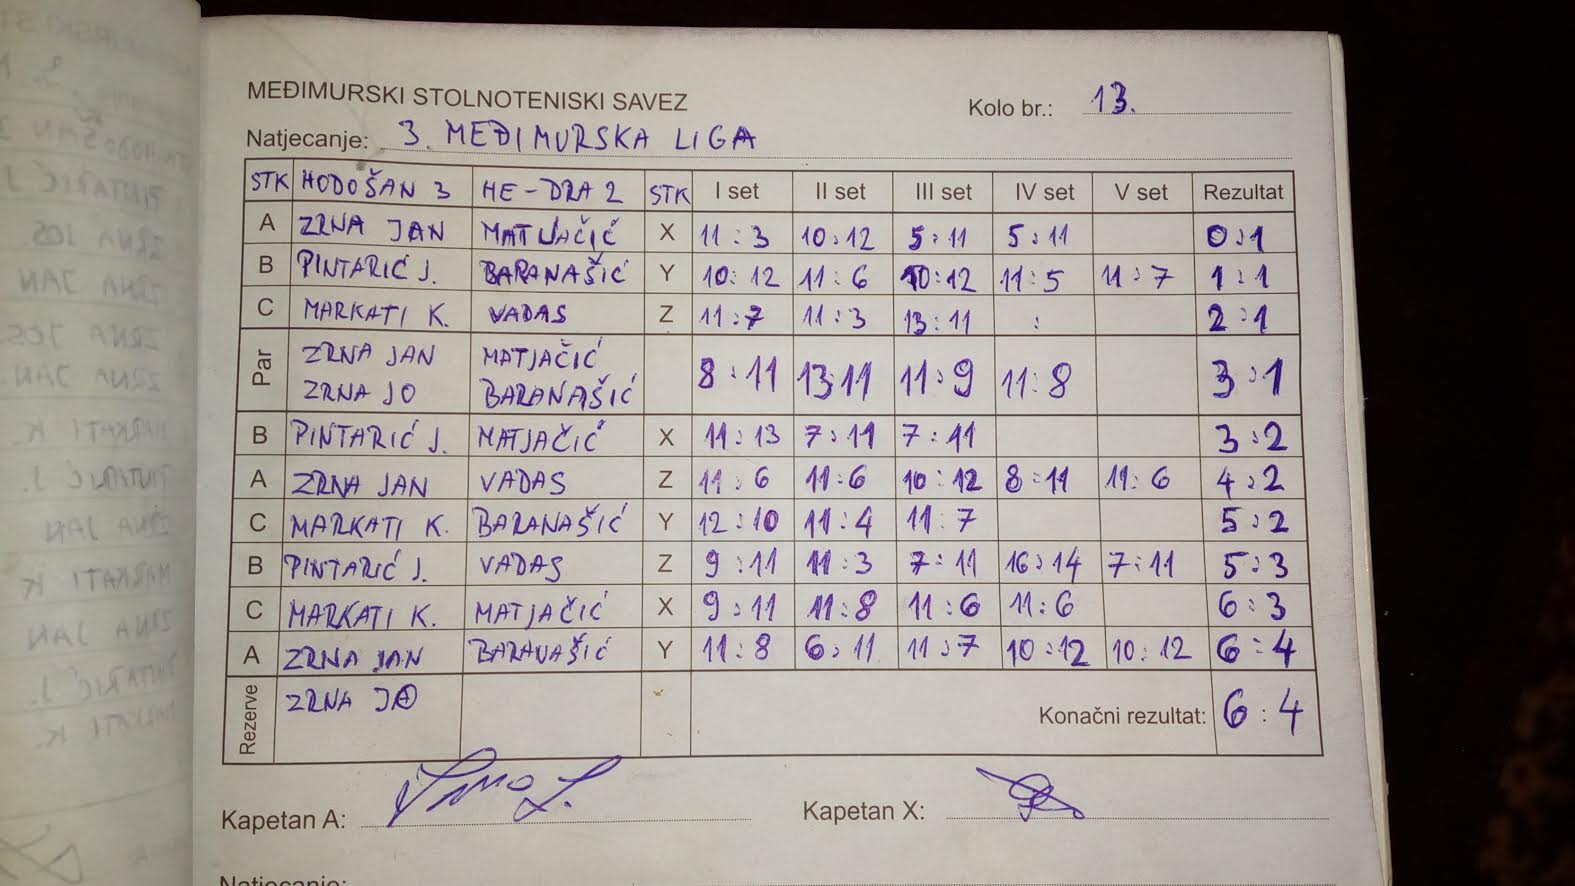 MEĐIMURSKI STOLNOTENISKI SAVEZ Kolo br.: 13.
Natjecanje: 3. MEĐIMURSKA LIGA
STK HODOŠAN 3 HE-DRA 2 STK I set II set III set IV set V set Rezultat
A ZRNA JAN MATJAČIĆ X 11:3 10:12 5:11 5:11 0:1
B PINTARIĆ J. BARANAŠIĆ Y 10:12 11:6 10:12 11:5 11:7 1:1
C MARKATI K. VADAS Z 11:7 11:3 13:11 : 2:1
Par ZRNA JAN MATJAČIĆ 8:11 13:11 11:9 11:8 3:1
ZRNA JO BARANAŠIĆ
B PINTARIĆ J. MATJAČIĆ X 11:13 7:11 7:11 3:2
A ZRNA JAN VADAS Z 11:6 11:6 10:12 8:11 11:6 4:2
C MARKATI K. BARANAŠIĆ Y 12:10 11:4 11:7 5:2
B PINTARIĆ J. VADAS Z 9:11 11:3 7:11 16:14 7:11 5:3
C MARKATI K. MATJAČIĆ X 9:11 11:8 11:6 11:6 6:3
A ZRNA JAN BARANAŠIĆ Y 11:8 6:11 11:7 10:12 10:12 6:4
Rezerve ZRNA JO Konačni rezultat: 6:4
Kapetan A: Kapetan X:
Natjecanje: